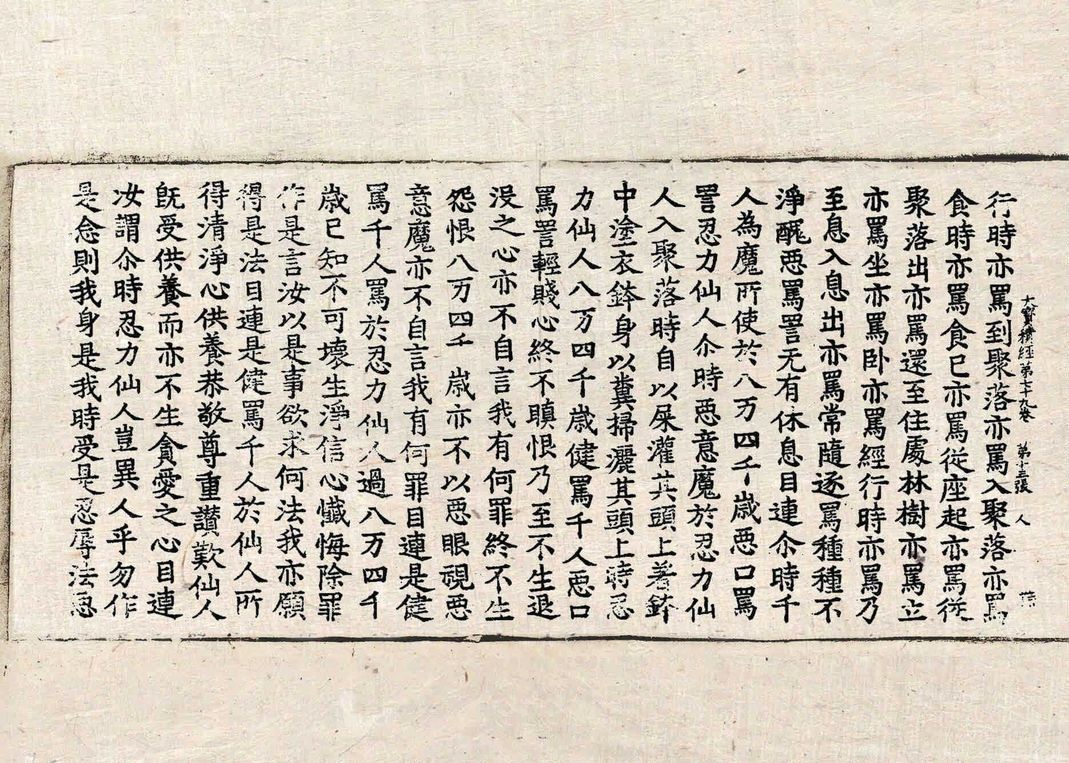 大寶積經第七十九卷 第十三張 人
行時亦罵到聚落亦罵入聚落亦罵
食時亦罵食已亦罵從座起亦罵從
聚落出亦罵還至住處林樹亦罵立
亦罵坐亦罵卧亦罵經行時亦罵乃
至息入息出亦罵常隨逐罵種種不
淨醜惡罵詈无有休息目連尒時千
人為魔所使於八万四千歲惡口罵
詈忍力仙人尒時惡意魔於忍力仙
人入聚落時自以屎灌其頭上著鉢
中塗衣鉢身以糞掃灑其頭上時忍
力仙人八万四千歲健罵千人惡口
罵詈輕賤心終不瞋恨乃至不生退
没之心亦不自言我有何罪終不生
怨恨八万四千歲亦不以惡眼視惡
意魔亦不自言我有何罪目連是健
罵千人罵於忍力仙人過八万四千
歲已知不可壞生淨信心懺悔除罪
作是言汝以是事欲求何法我亦願
得是法目連是健罵千人於仙人所
得清淨心供養恭敬尊重讚歎仙人
既受供養而亦不生貪愛之心目連
汝謂尒時忍力仙人豈異人乎勿作
是念則我身是我時受是忍辱法惡